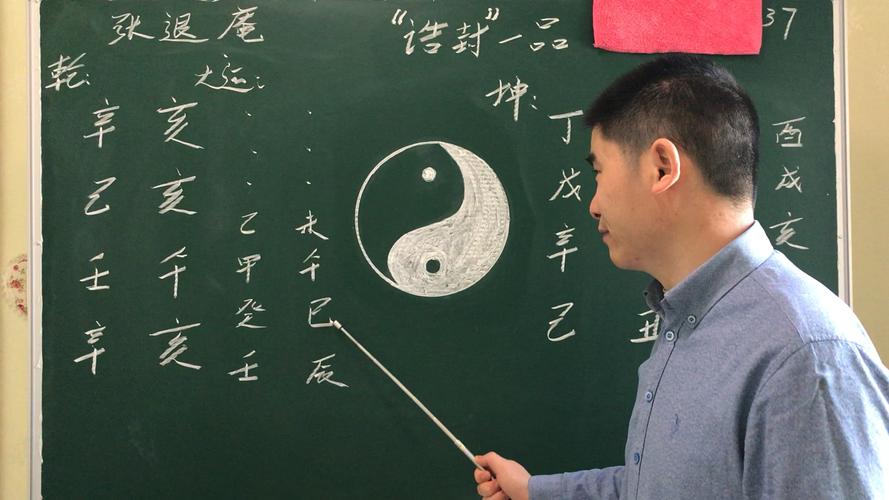 张退庵 "诰封"一品 37
乾: 大运: 坤:
辛亥
己亥
壬午
辛亥
乙未
甲午
癸巳
壬辰
丁
戊
辛
己 丑
酉
戌
亥